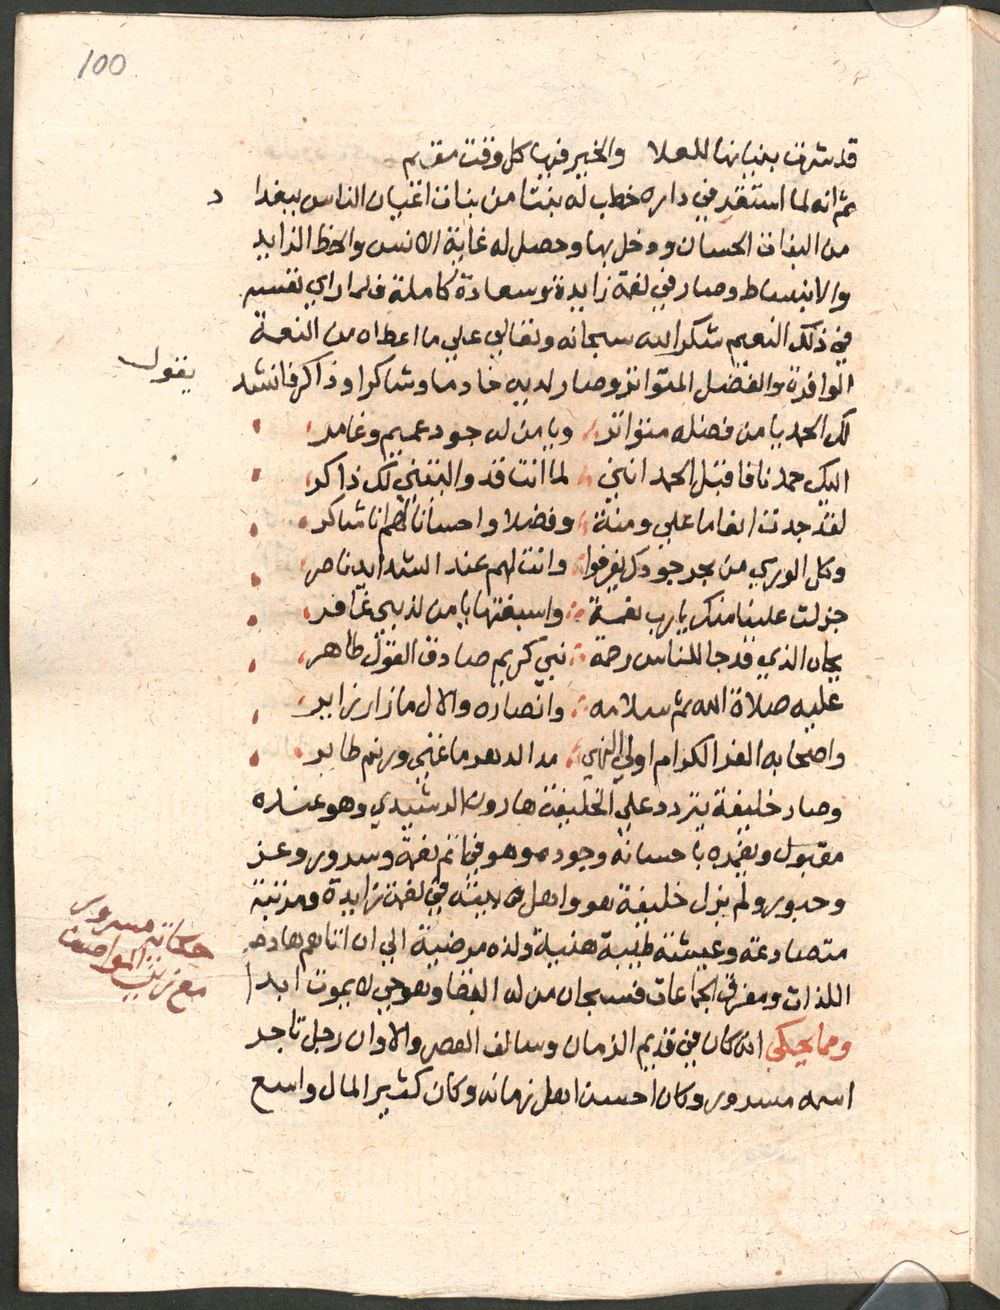 100
قد شرفت بنيانها للعلا والخير فيها كل وقت مقيم
ثم انه لما استقر في داره خطب له بنتا من بنات اغنيان الناس ببغدا د
من البنات الحسان ودخل بها وحصل له غاية الانس والحظ الزايد
والانبساط وصار في نعمة زايدة وسعادة كاملة فلما راي نفسه
في ذلك النعيم شكر الله سبحانه وتعالي علي ما اعطاه من النعمة
الوافرة والفضل المتواتر وصار لديه خادما وشاكرا وذاكر فانشد يقول
لك الحمد يا من فضله متواتر ويا من له جود عميم وغامر
اليك حمدنا فاقبل الحمد انني لما انت قد والبتني لك ذاكر
لقد جدت انعاما علي ومنة وفضلا واحسانا انا شاكر
وكل الوري من بحر جودك يغرفوا وانت لهم عند الشدايد ناصر
جزلت علينا منك يا رب نعمة واسبغتها يا من لذنبي غافر
بجان الذي قد جا للناس رحمة نبي كريم صادق القول طاهر
عليه صلاة الله ثم سلامه وانصاره والال ما زار زاير
واصحابه الغر الكرام اولي النهي مدا الدهر ما غني ورنم طاير
وصار خليفة يتردد علي الخليفة هارون الرشيدي وهو عنده
مقبول ويغمده باحسانه وجوده وهو في اتم نعمة وسرور وعز
وحبور ولم يزل خليفة هو واهل بيته في نعمة زايدة ومرتبة
متصادعة وعيشة طيبة هنية ولذه مرضية الي ان اتاهم هادم
اللذات ومفرق الجماعات فسبحان من له البقا وهو حي لا يموت ابدا
ومما يحكي انه كان في قديم الزمان وسالف العصر والاوان رجل تاجر
اسمه مسرور وكان احسن اهل زمانه وكان كثير المال واسع
حكاية مسرور
مع زين المواصف